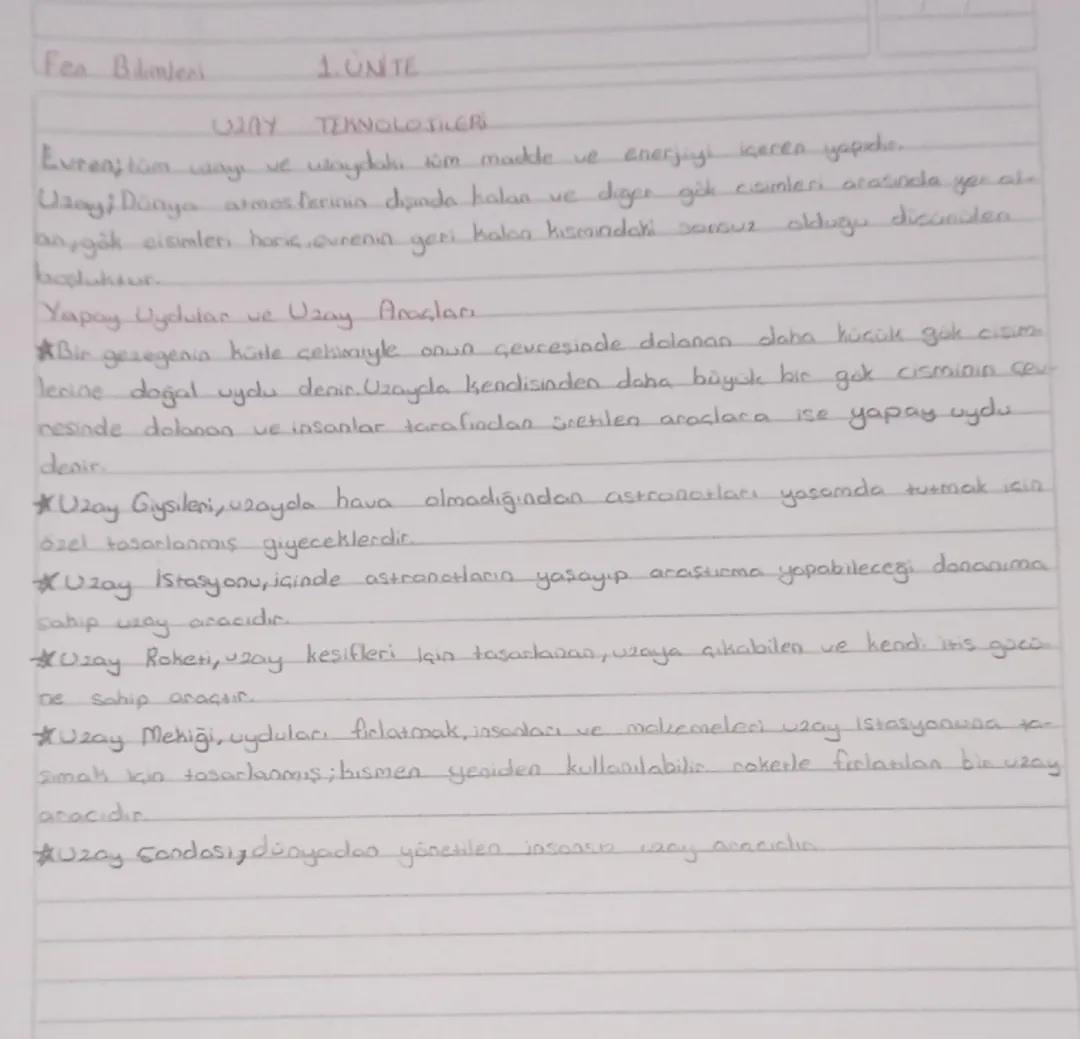 Fen Bilimleri 1. ÜNİTE
UZAY TEKNOLOJİLERİ
Evren; tüm uzayı ve uzaydaki tüm madde ve enerjiyi içeren yapıdır.
Uzay; Dünya atmosferinin dışında kalan ve diğer gök cisimleri arasında yer al-
an, gök cisimleri hariç, evrenin geri kalan kısmındaki sonsuz olduğu düşünülen
boşluktur.
Yapay Uydular ve Uzay Araçları
*Bir gezegenin kütle çekimiyle onun çevresinde dolanan daha küçük gök cisim-
lerine doğal uydu denir. Uzayda kendisinden daha büyük bir gök cisminin çev-
resinde dolanan ve insanlar tarafından üretilen araçlara ise yapay uydu
denir.
*Uzay Giysileri, uzayda hava olmadığından astronotları yaşamda tutmak için
özel tasarlanmış giyeceklerdir.
*Uzay İstasyonu, içinde astronotların yaşayıp araştırma yapabileceği donanıma
sahip uzay aracıdır.
*Uzay Roketi, uzay keşifleri için tasarlanan, uzaya çıkabilen ve kendi itiş gücü-
ne sahip araçtır.
*Uzay Mekiği, uyduları fırlatmak, insanları ve malzemeleri uzay istasyonuna ta-
şımak için tasarlanmış; kısmen yeniden kullanılabilir roketle fırlatılan bir uzay
aracıdır.
*Uzay Sondası, dünyadan yönetilen insansız uzay aracıdır.